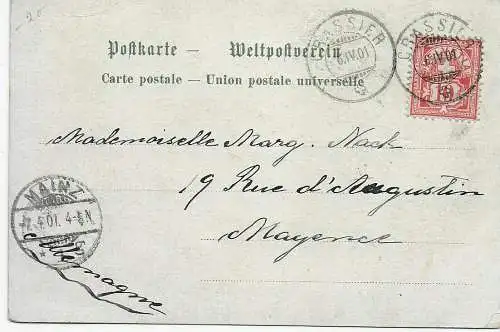 -20
Postkarte — Weltpostverein
Carte postale — Union postale universelle
CRASSIER
6.IV.01
CRASSIER
6.IV.01
10
Mademoiselle Marg. Nack
19 Rue d'Augustin
Mayence
Allemagne
MAINZ
7.4.01. 4-5N.